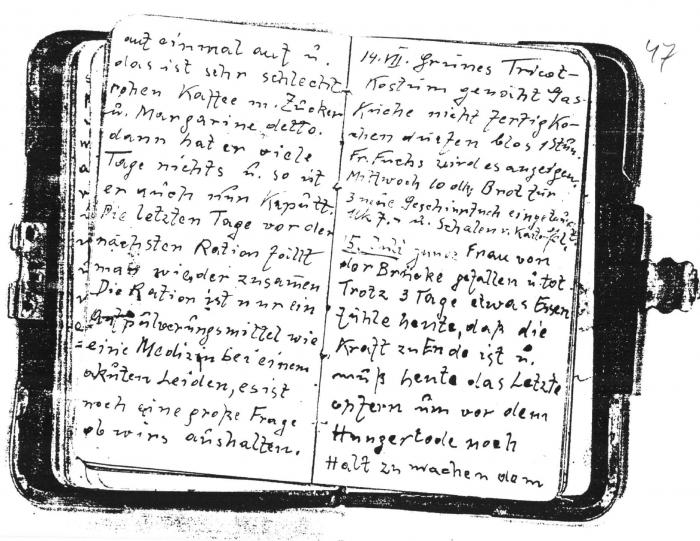 47
auf einmal auf u.
das ist sehr schlecht
rohen Kaffee m. Zucker
u. Margarine detto.
dann hat er viele
Tage nichts u. so ist
er auch nun Kaputt.
Die letzten Tage vor der
nächsten Ration fällt
man wieder zusammen
Die Ration ist nur ein
pulverungsmittel wie
eine Medizin bei einem
akuten Leiden, es ist
noch eine große Frage
ob wirs aushalten.
14. VII. Grünes Tricot-
Kostüm genäht Gas-
Küche nicht fertig Ko-
chen dürfen blos 1 Stun.
Fr. Fuchs wird es anzeigen.
Mittwoch 10 dkg Brot für
3 neue Geschirrtuch
u. Schalen v. Kartoffel
15. Juli junge Frau von
der Brücke gefallen u. tot.
Trotz 3 Tage etwas Essen
fühle heute, daß die
Kraft zu Ende ist u.
muß heute das Letzte
opfern um vor dem
Hungertode noch
Halt zu machen dem